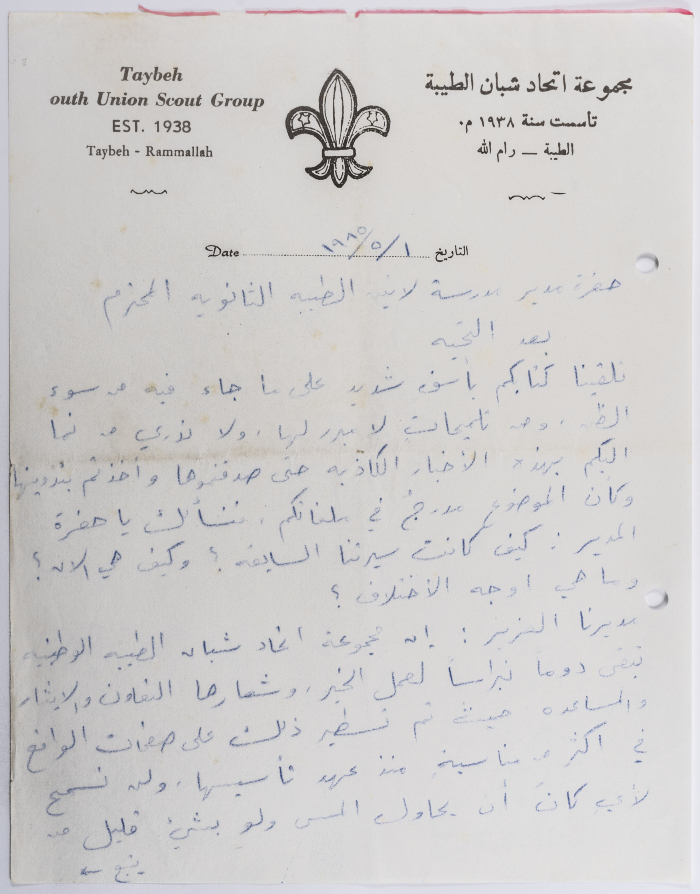 Taybeh
outh Union Scout Group
EST. 1938
Taybeh - Rammallah
مجموعة اتحاد شبان الطيبة
تأسست سنة ١٩٣٨ م.
الطيبة — رام الله
Date ١٩٨٥/٥/١ التاريخ
حضرة مدير مدرسة لاتين الطيبه الثانويه المحترم
بعد التحيه
تلقينا كتابكم بأسف شديد على ما جاء فيه من سوء
الظن، ومن تلميحات لا مبرر لها، ولا ندري من نما
اليكم بهذه الأخبار الكاذبه حتى صدقتموها واخذتم بتدوينها
وكأن الموضوع مدرجٌ في ملفاتكم، فنسألك يا حضرة
المدير : كيف كانت سيرتنا السابقه ؟ وكيف هي الان ؟
وما هي اوجه الاختلاف ؟
مديرنا العزيز : إن مجموعة اتحاد شبان الطيبه الوطنيه
تبقى دوماً نبراساً لعمل الخير، وشعارها التعاون والايثار
والمساعده حيث تم تسطير ذلك على صفحات الواقع
في اكثر من مناسبةٍ منذ عهد تأسيسها، ولن نسمح
لأي كان أن يحاول المس ولو بشيءٍ قليل من
يتبع ←